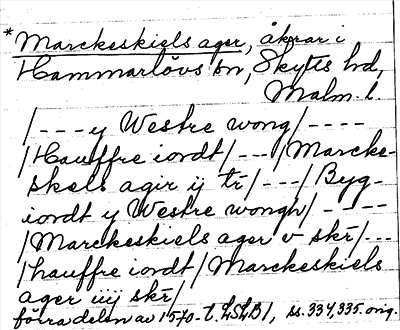 *Marckeskiels ager, åkrar i
Hammarlövs sn, Skytts hd,
Malm. l.
/---y Westre wong/----
/Hauffre iordt/---/Marcke-
skels agir ij tr̄/---/Byg-
iordt y Westre wongh/-----
/Marckeskiels ager v skr̄/---
/hauffre iordt/ /Marckeskiels
ager iiij skr̄/
förra delen av 1570-t. LSLB1, ss. 334,335. orig.